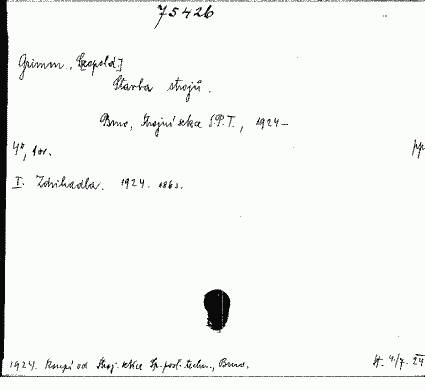 75426
Grimm, [Leopold]
Stavba strojů.
Brno, Strojní sekce S.P.T., 1924-
4°, obr. pp
I. Zdvihadla. 1924. 186 s.
1924. Koupě od Stroj. sekce Sp. posl. techn., Brno. St. 4/7. 24